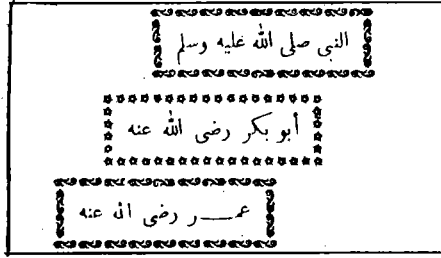 النبى صلى الله عليه وسلم
أبو بكر رضى الله عنه
عمـــر رضى الله عنه